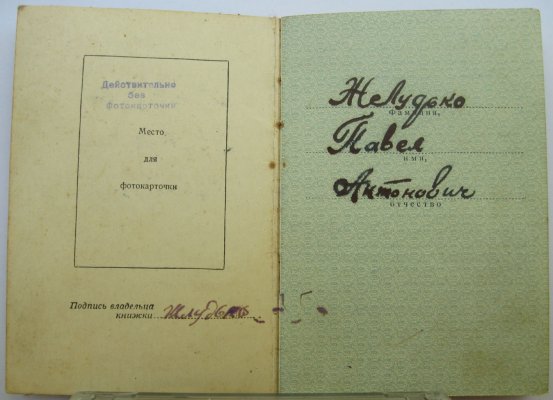 Действительно
без
фотокарточки
Место
для
фотокарточки
Подпись владельца
книжки Желудько
Желудько
фамилия,
Павел
имя,
Антонович
отчество